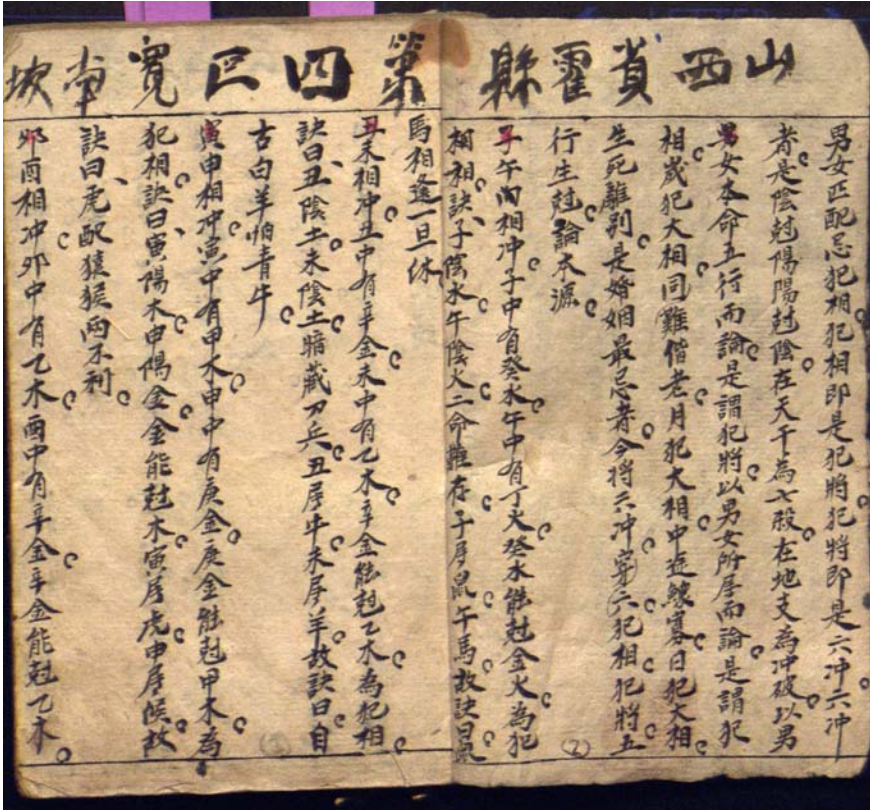 山西省霍縣 第四区寬南坎
男女匹配忌犯相犯相即是犯將犯將即是六冲六冲
者是陰尅陽陽尅陰在天干為七殺在地支為冲破以男
男女本命五行而論是謂犯將以男女所屬而論是謂犯
相歲犯大相同難偕老月犯大相中途鰥寡日犯大相
生死離别是婚姻最忌者今將六冲穿六犯相犯將五
行生尅論本源
子午向相冲子中有癸水午中有丁火癸水能尅金火為犯
相相訣子陰水午陰火二命難存子屬鼠午馬故訣曰鼠
馬相逢一旦休
丑未相冲丑中有辛金未中有乙木辛金能尅乙木為犯相
訣曰丑陰土未陰土暗藏刀兵丑屬牛未屬羊故訣曰自
古白羊怕青牛
寅申相冲寅中有甲木申中有庚金庚金能尅甲木為
犯相訣曰寅陽木申陽金金能尅木寅屬虎申屬候故
訣曰虎配猿猴两不利
夘酉相冲夘中有乙木酉中有辛金辛金能尅乙木